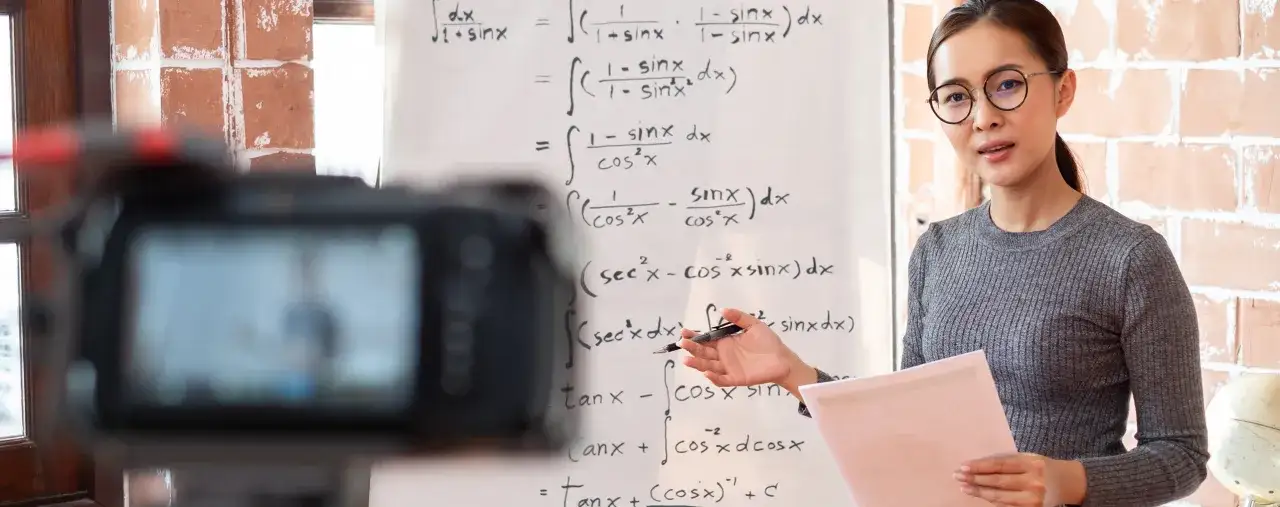 ∫ dx/(1+sinx) = ∫(1/(1+sinx) · (1-sinx)/(1-sinx))dx
= ∫((1-sinx)/(1-sin²x) dx)
= ∫ (1-sinx)/(cos²x) dx
= ∫(1/(cos²x) - sinx/(cos²x))dx
∫(sec²x - cos⁻²x sinx)dx
∫(sec²x dx) ∫( sinx dx)
tanx - ∫cos x
tanx + ∫cos⁻²x dcosx
= Tanx + (cosx)⁻¹ + c